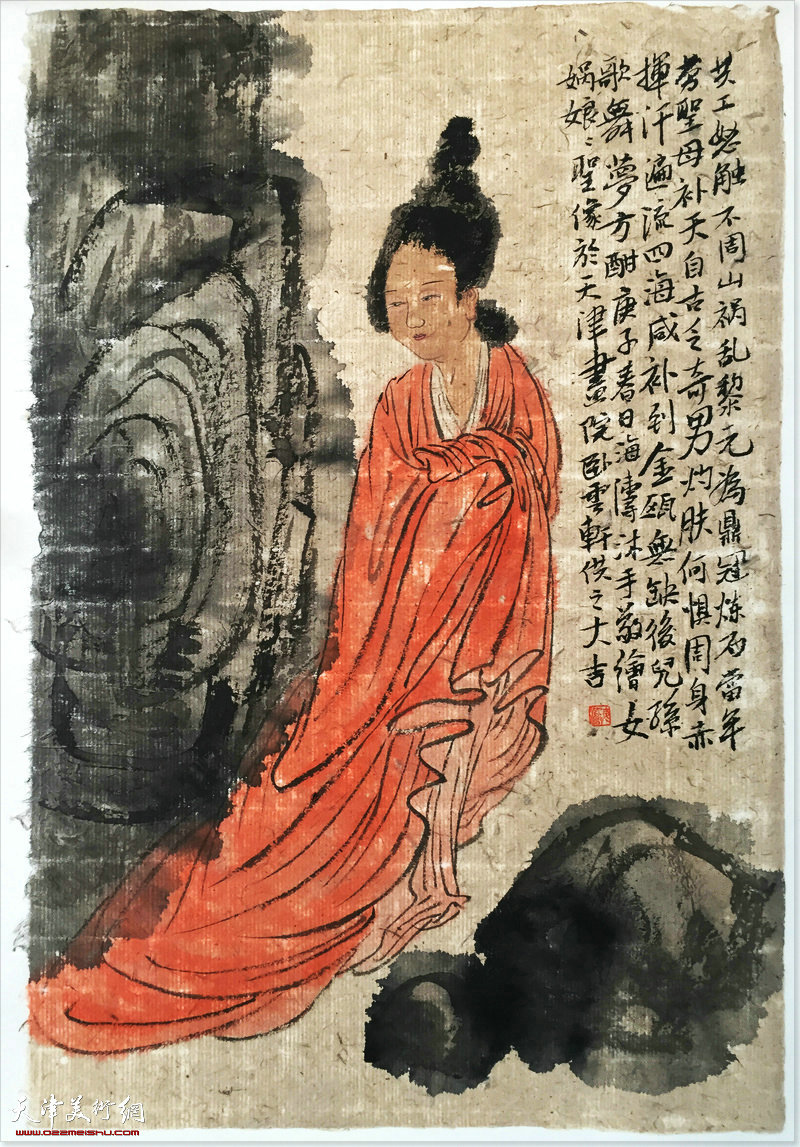 共工怒触不周山祸乱黎元为鼎冠炼石当年
劳聖母补天自古乏奇男灼肤何惧周身赤
揮汗遍流四海咸补到金瓯無缺後兒孫
歌舞夢方酣庚子春日海濤沐手敬繪女
娲娘〻聖像於天津畫院卧雲軒供之大吉
天津美術網
www.022meishu.com